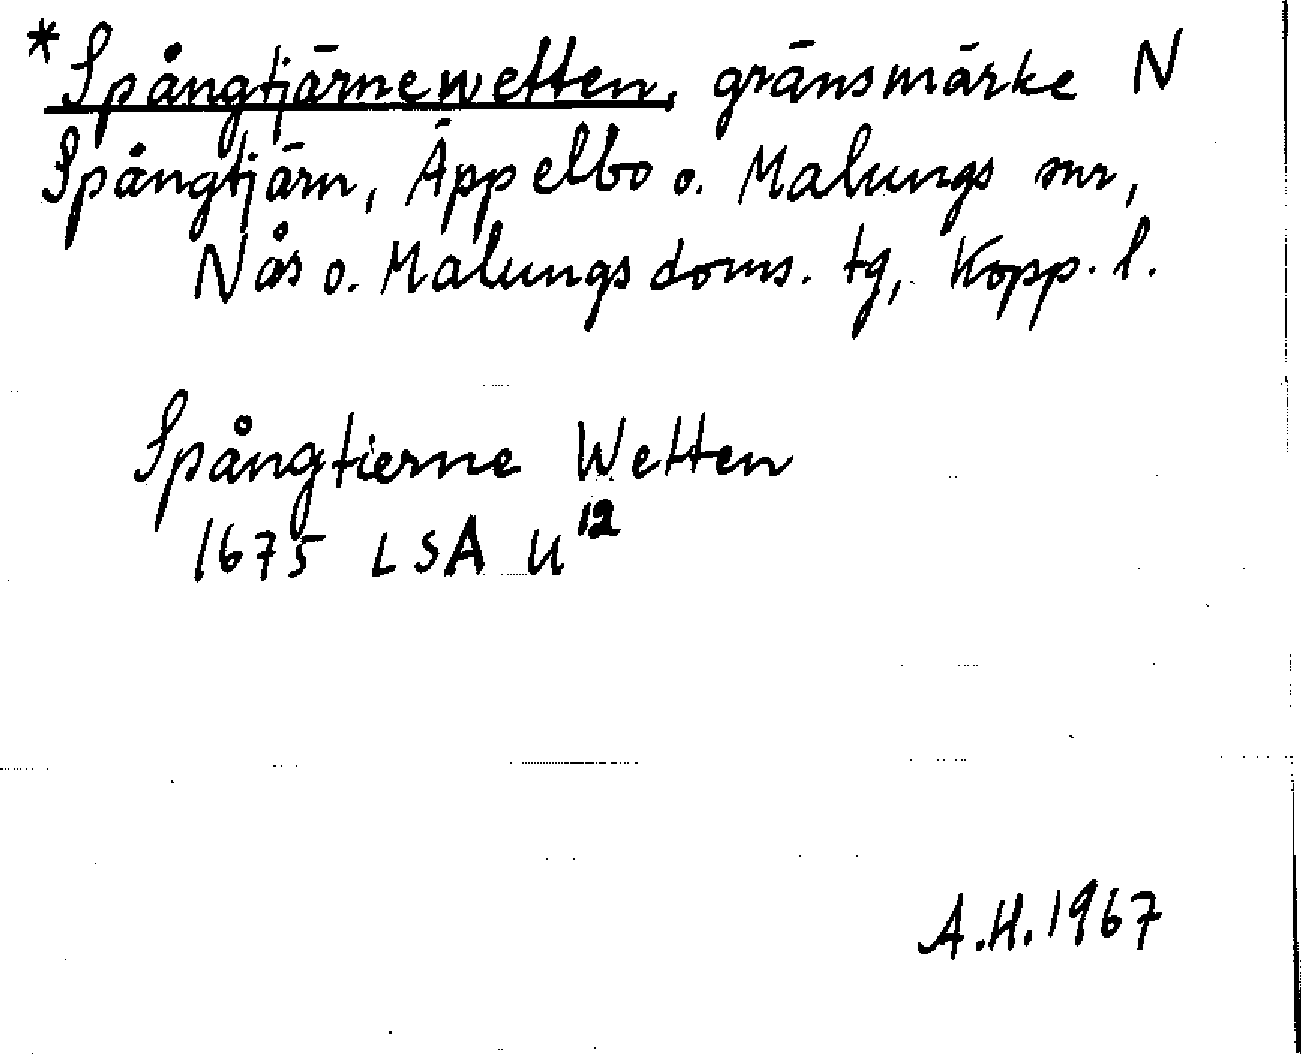 *Spångtjärnewetten, gränsmärke N
Spångtjärn, Äppelbo o. Malungs snr,
Nås o. Malungs doms. tg, Kopp. l.
Spångtierne Wetten
1675 LSA U¹²
A.H. 1967